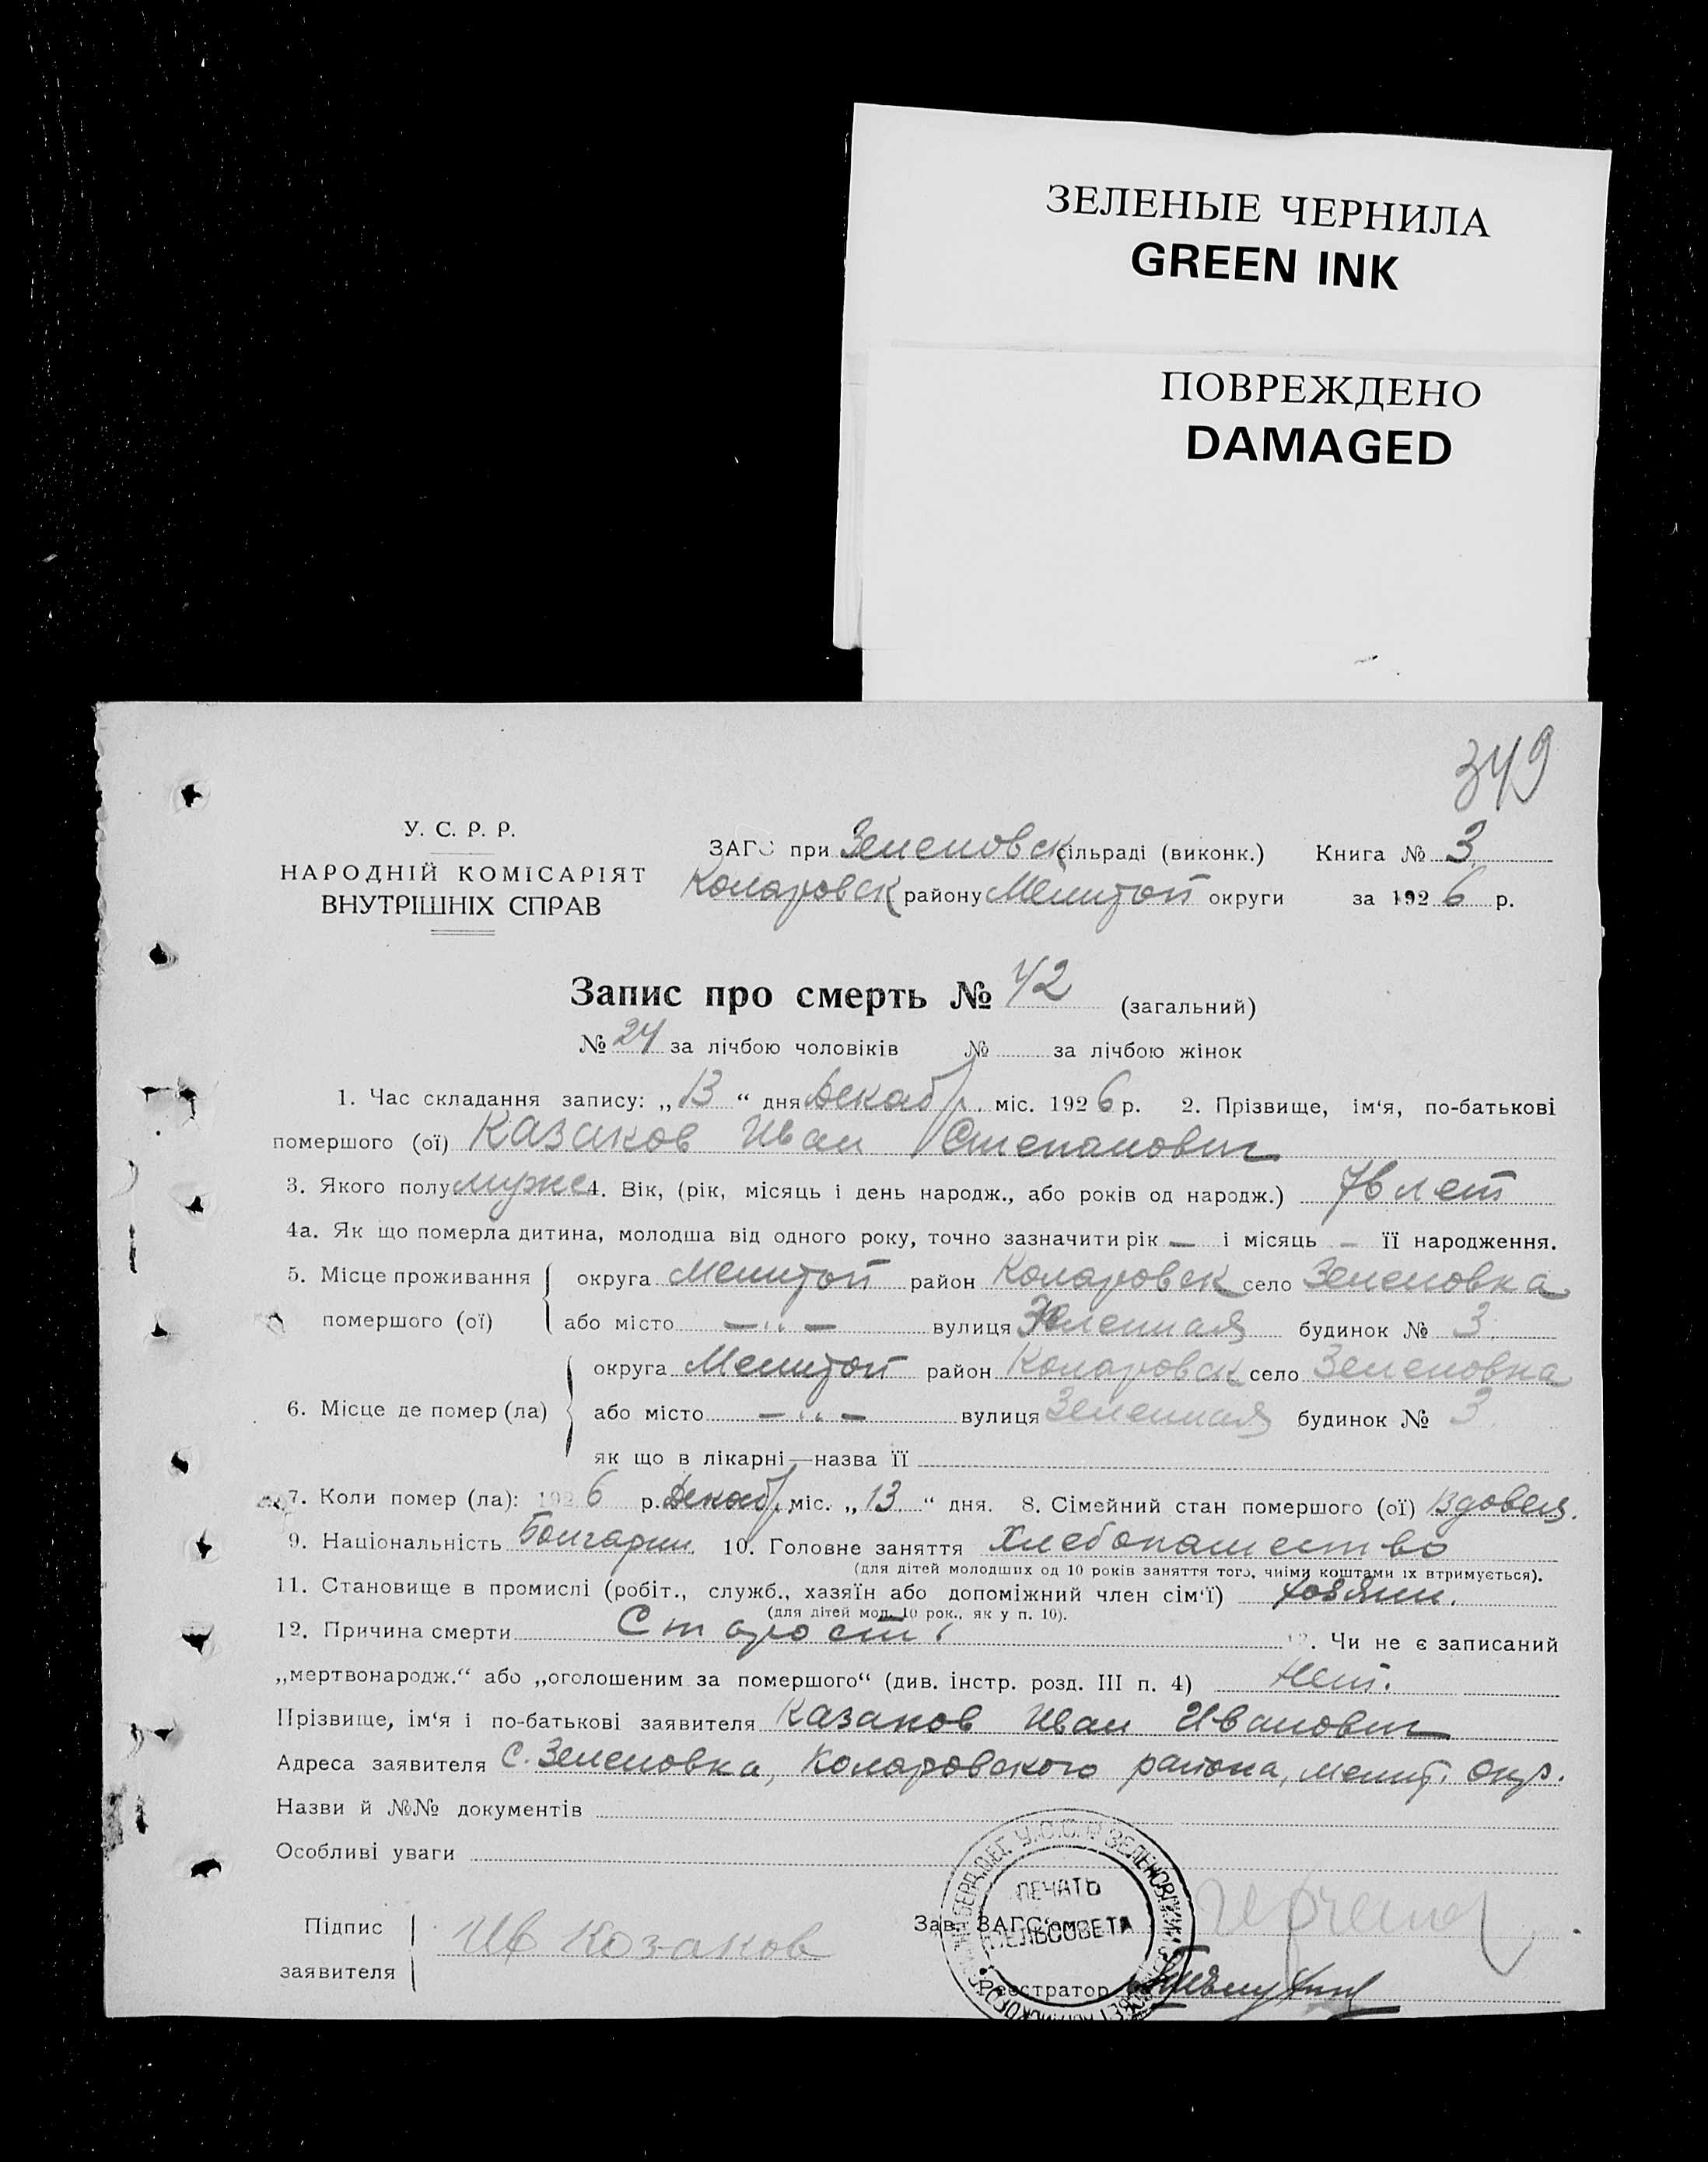 ЗЕЛЕНЫЕ ЧЕРНИЛА
GREEN INK
ПОВРЕЖДЕНО
DAMAGED
349
У. С. Р. Р.
НАРОДНІЙ КОМІСАРІЯТ
ВНУТРІШНІХ СПРАВ
ЗАГС при Зеленовск сільраді (виконк.) Книга № 3
Коларовск району Мелитоп округи за 1926 р.
Запис про смерть № 42 (загальний)
№ 24 за лічбою чоловіків № за лічбою жінок
1. Час складання запису: „13“ дня Декабр. міс. 1926 р. 2. Прізвище, ім‘я, по-батькові
помершого (ої) Казаков Иван Степанович
3. Якого полу мужс 4. Вік, (рік, місяць і день народж., або років од народж.) 76 лет
4а. Як що померла дитина, молодша від одного року, точно зазначити рік — і місяць — її народження.
5. Місце проживання округа Мелитоп район Коларовск село Зеленовка
помершого (ої) або місто —„— вулиця Зеленная будинок № 3.
округа Мелитоп район Коларовск село Зеленовка
6. Місце де помер (ла) або місто —„— вулиця Зеленная будинок № 3
як що в лікарні—назва її
7. Коли помер (ла): 1926 р. Декабр. міс. „13“ дня. 8. Сімейний стан помершого (ої) Вдовец.
9. Національність Болгарин. 10. Головне заняття Хлебопашество
(для дітей молодших од 10 років заняття того, чиїми коштами їх втримується).
11. Становище в промислі (робіт., служб., хазяїн або допоміжний член сім‘ї) хозяин.
(для дітей мол. 10 рок., як у п. 10).
12. Причина смерти Старость. Чи не є записаний
„мертвонародж.“ або „оголошеним за помершого“ (див. інстр. розд. III п. 4) Нет.
Прізвище, ім‘я і по-батькові заявителя Казаков Иван Иванович
Адреса заявителя с. Зеленовка, Коларовского района, Мелит. Окр.
Назви й №№ документів
Особливі уваги
ПЕЧАТЬ
СЕЛЬСОВЕТА
Підпис
заявителя
Ив Козаков
Зав. ЗАГС'ом
Реєстратор